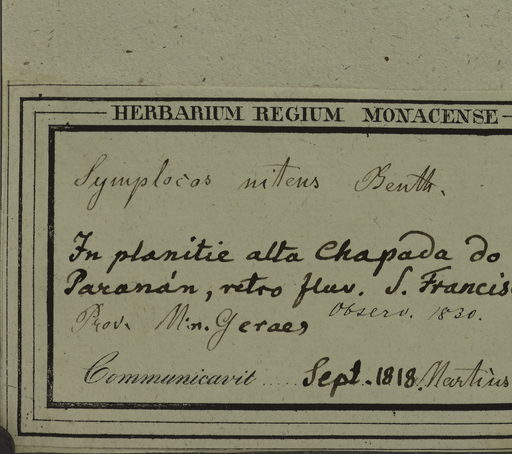 HERBARIUM REGIUM MONACENSE
Symplocos nitens Benth.
In planitie alta Chapada do
Paranán, retro fluv. S. Francis
Prov. Min. Geraes Observ. 1830.
Communicavit ..... Sept. 1818. Martius